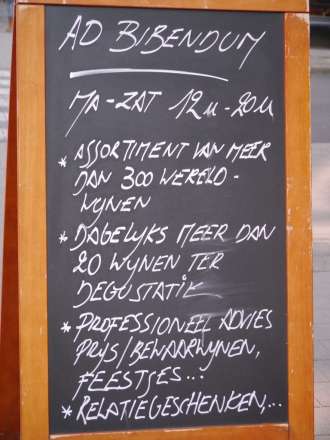 AD BIBENDUM
MA-ZAT 12u-20u
* ASSORTIMENT VAN MEER
DAN 300 WERELD-
WIJNEN
* DAGELIJKS MEER DAN
20 WIJNEN TER
DEGUSTATIE
* PROFESSIONEEL ADVIES
PRIJS/BEWAARWIJNEN,
FEESTJES...
* RELATIEGESCHENKEN,...